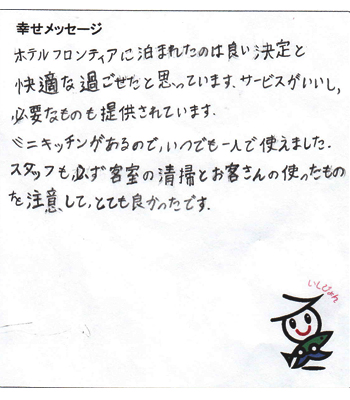 幸せメッセージ
ホテルフロンティアに泊まれたのは良い決定と
快適な過ごせたと思っています. サービスがいいし,
必要なものも提供されています.
ミニキッチンがあるので, いつでも一人で使えました.
スタッフも必ず客室の清掃とお客さんの使ったもの
を注意して, とても良かったです.
いしぴょん